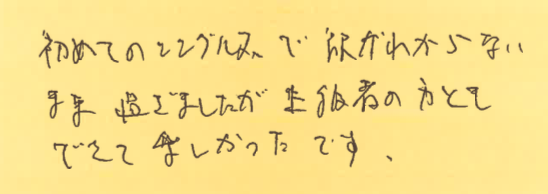 初めてのシングルスで 訳がわからない
まま 過ぎましたが 上級者の方とも
できて 楽しかったです、